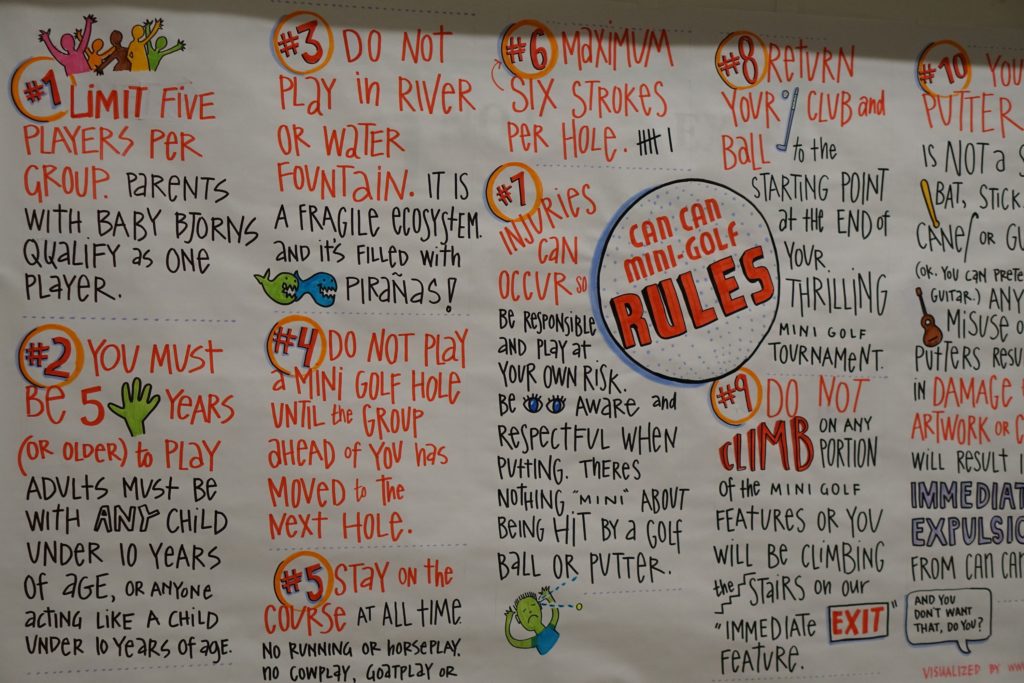 #1 LIMIT FIVE
PLAYERS PER
GROUP. PARENTS
WITH BABY BJORNS
QQUALIFY as ONE
PLAYER.
#2 YOU MUST
BE 5 YEARS
(OR OLDER) to PLAY
ADULTS MUST BE
WITH ANY CHILD
UNDER 10 YEARS
OF AGE, OR ANYONE
ACTING LIKE A CHILD
UNDER 10 YEARS of age.
#3 DO NOT
PLAY in RIVER
OR WATER
FOUNTAIN. IT IS
A FRAGILE ECOSYSTEM.
and it's FILLED with
PIRAÑAS!
#4 DO NOT PLAY
a MINI GOLF HOLE
UNTIL the GROUP
AHEAD OF YOU has
MOVED to the
NEXT HOLE.
#5 STAY on the
COURSE AT ALL TIME
NO RUNNING OR HORSEPLAY,
NO COWPLAY, GOATPLAY OR
#6 MAXIMUM
SIX STROKES
PER HOLE.
#7
INJURIES
CAN
OCCUR so
BE RESPONSIBLE
AND PLAY AT
YOUR OWN RISK.
BE AWARE and
RESPECTFUL WHEN
PUTTING. THERES
NOTHING "MINI" ABOUT
BEING HIT BY a GOLF
BALL OR PUTTER.
CAN CAN
MINI-GOLF
RULES
#8 RETURN
YOUR CLUB and
BALL to the
STARTING POINT
at the END of
YOUR
THRILLING
MINI GOLF
TOURNAMENT.
#9 DO NOT
CLIMB ON ANY
PORTION
of the MINI GOLF
FEATURES OR YOU
WILL BE CLIMBING
the STAIRS on our
"IMMEDIATE EXIT"
FEATURE.
#10 YOU
PUTTER
IS NOT a
BAT, STICK
CANE/ OR
(OK. YOU CAN
GUITAR.) ANY
MISUSE
PUTTERS
in DAMAGE
ARTWORK OR
WILL RESULT
FROM CAN CAN
AND YOU
DON'T WANT
THAT, DO YOU?
VISUALIZED BY